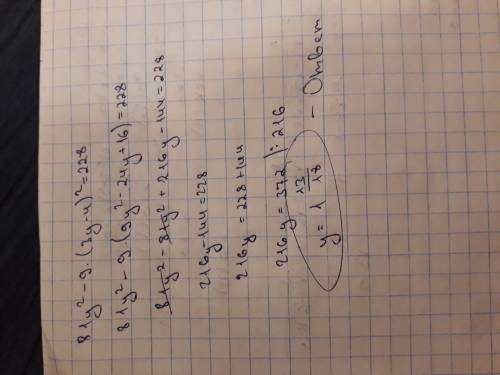 81y² - 9·(3y-4)² = 228
81y² - 9·(9y² - 24y + 16) = 228
81y² - 81y² + 216y - 144 = 228
216y - 144 = 228
216y = 228 + 144
216y = 372 | : 216
y = 1 13/18 - Ответ